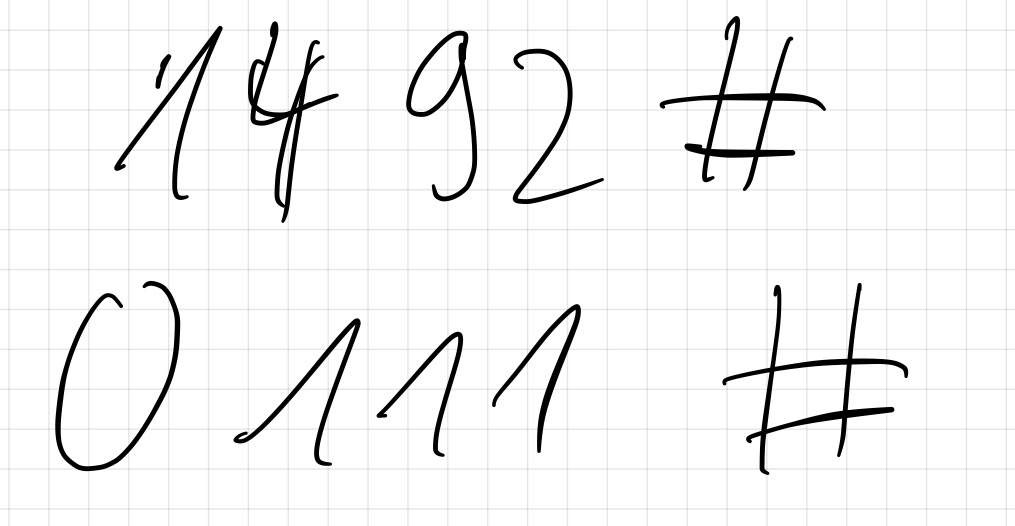 1492#
0111#